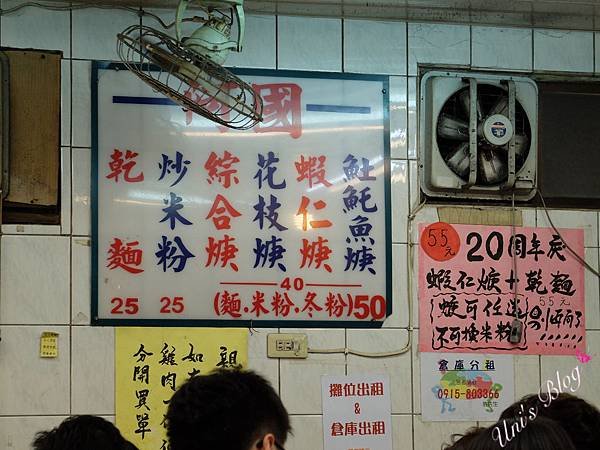 國
魠魚焿
蝦仁焿
花枝焿
綜合焿
炒米粉
乾麵
40
(麵.米粉.冬粉)50
25
25
55元
20周年慶
蝦仁焿+乾麵
焿可任選
不可換米粉
55元
親
如
雞肉
分開
單
攤位出租
&
倉庫出租
倉庫分租
0915-803366
Uni's Blog